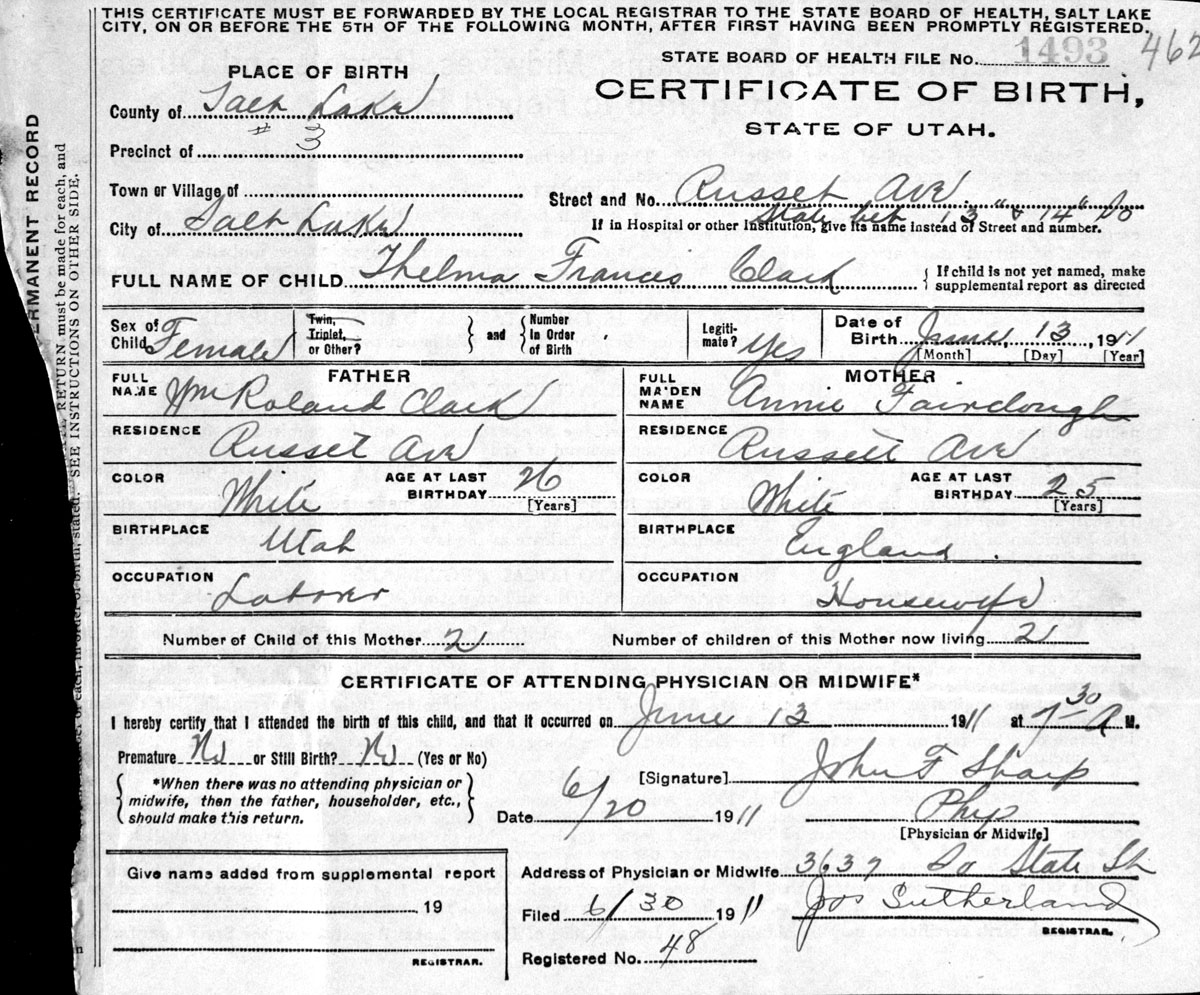 THIS CERTIFICATE MUST BE FORWARDED BY THE LOCAL REGISTRAR TO THE STATE BOARD OF HEALTH, SALT LAKE
CITY, ON OR BEFORE THE 5TH OF THE FOLLOWING MONTH, AFTER FIRST HAVING BEEN PROMPTLY REGISTERED.
STATE BOARD OF HEALTH FILE No. 1493 462
PLACE OF BIRTH
CERTIFICATE OF BIRTH,
STATE OF UTAH.
County of Salt Lake
Precinct of # 3
Town or Village of
Street and No. Russet Ave
State bet 13" & 14" So
City of Salt Lake
If in Hospital or other Institution, give its name instead of Street and number.
FULL NAME OF CHILD Thelma Frances Clark
If child is not yet named, make
supplemental report as directed
Sex of Child Female
Twin, Triplet, or Other?
and
Number In Order of Birth
Legiti-mate? Yes
Date of Birth June 13, 1911
[Month] [Day] [Year]
FATHER
FULL NAME Wm Roland Clark
MOTHER
FULL MAIDEN NAME Annie Fairclough
RESIDENCE Russet Ave
RESIDENCE Russett Ave
COLOR White AGE AT LAST BIRTHDAY 26 [Years]
COLOR White AGE AT LAST BIRTHDAY 25 [Years]
BIRTHPLACE Utah
BIRTHPLACE England.
OCCUPATION Laborer
OCCUPATION Housewife
Number of Child of this Mother 2 Number of children of this Mother now living 2
CERTIFICATE OF ATTENDING PHYSICIAN OR MIDWIFE*
I hereby certify that I attended the birth of this child, and that it occurred on June 13 1911 at 7 30 A M.
Premature No or Still Birth? No (Yes or No)
*When there was no attending physician or
midwife, then the father, householder, etc.,
should make this return.
[Signature] John F Sharp
Date 6/20 1911 Phys
[Physician or Midwife]
Give name added from supplemental report
19
REGISTRAR.
Address of Physician or Midwife 3637 So State St
Filed 6/30 1911 Jos Sutherland
REGISTRAR.
Registered No. 48
ERMANENT RECORD
RETURN must be made for each, and
stated. SEE INSTRUCTIONS ON OTHER SIDE.